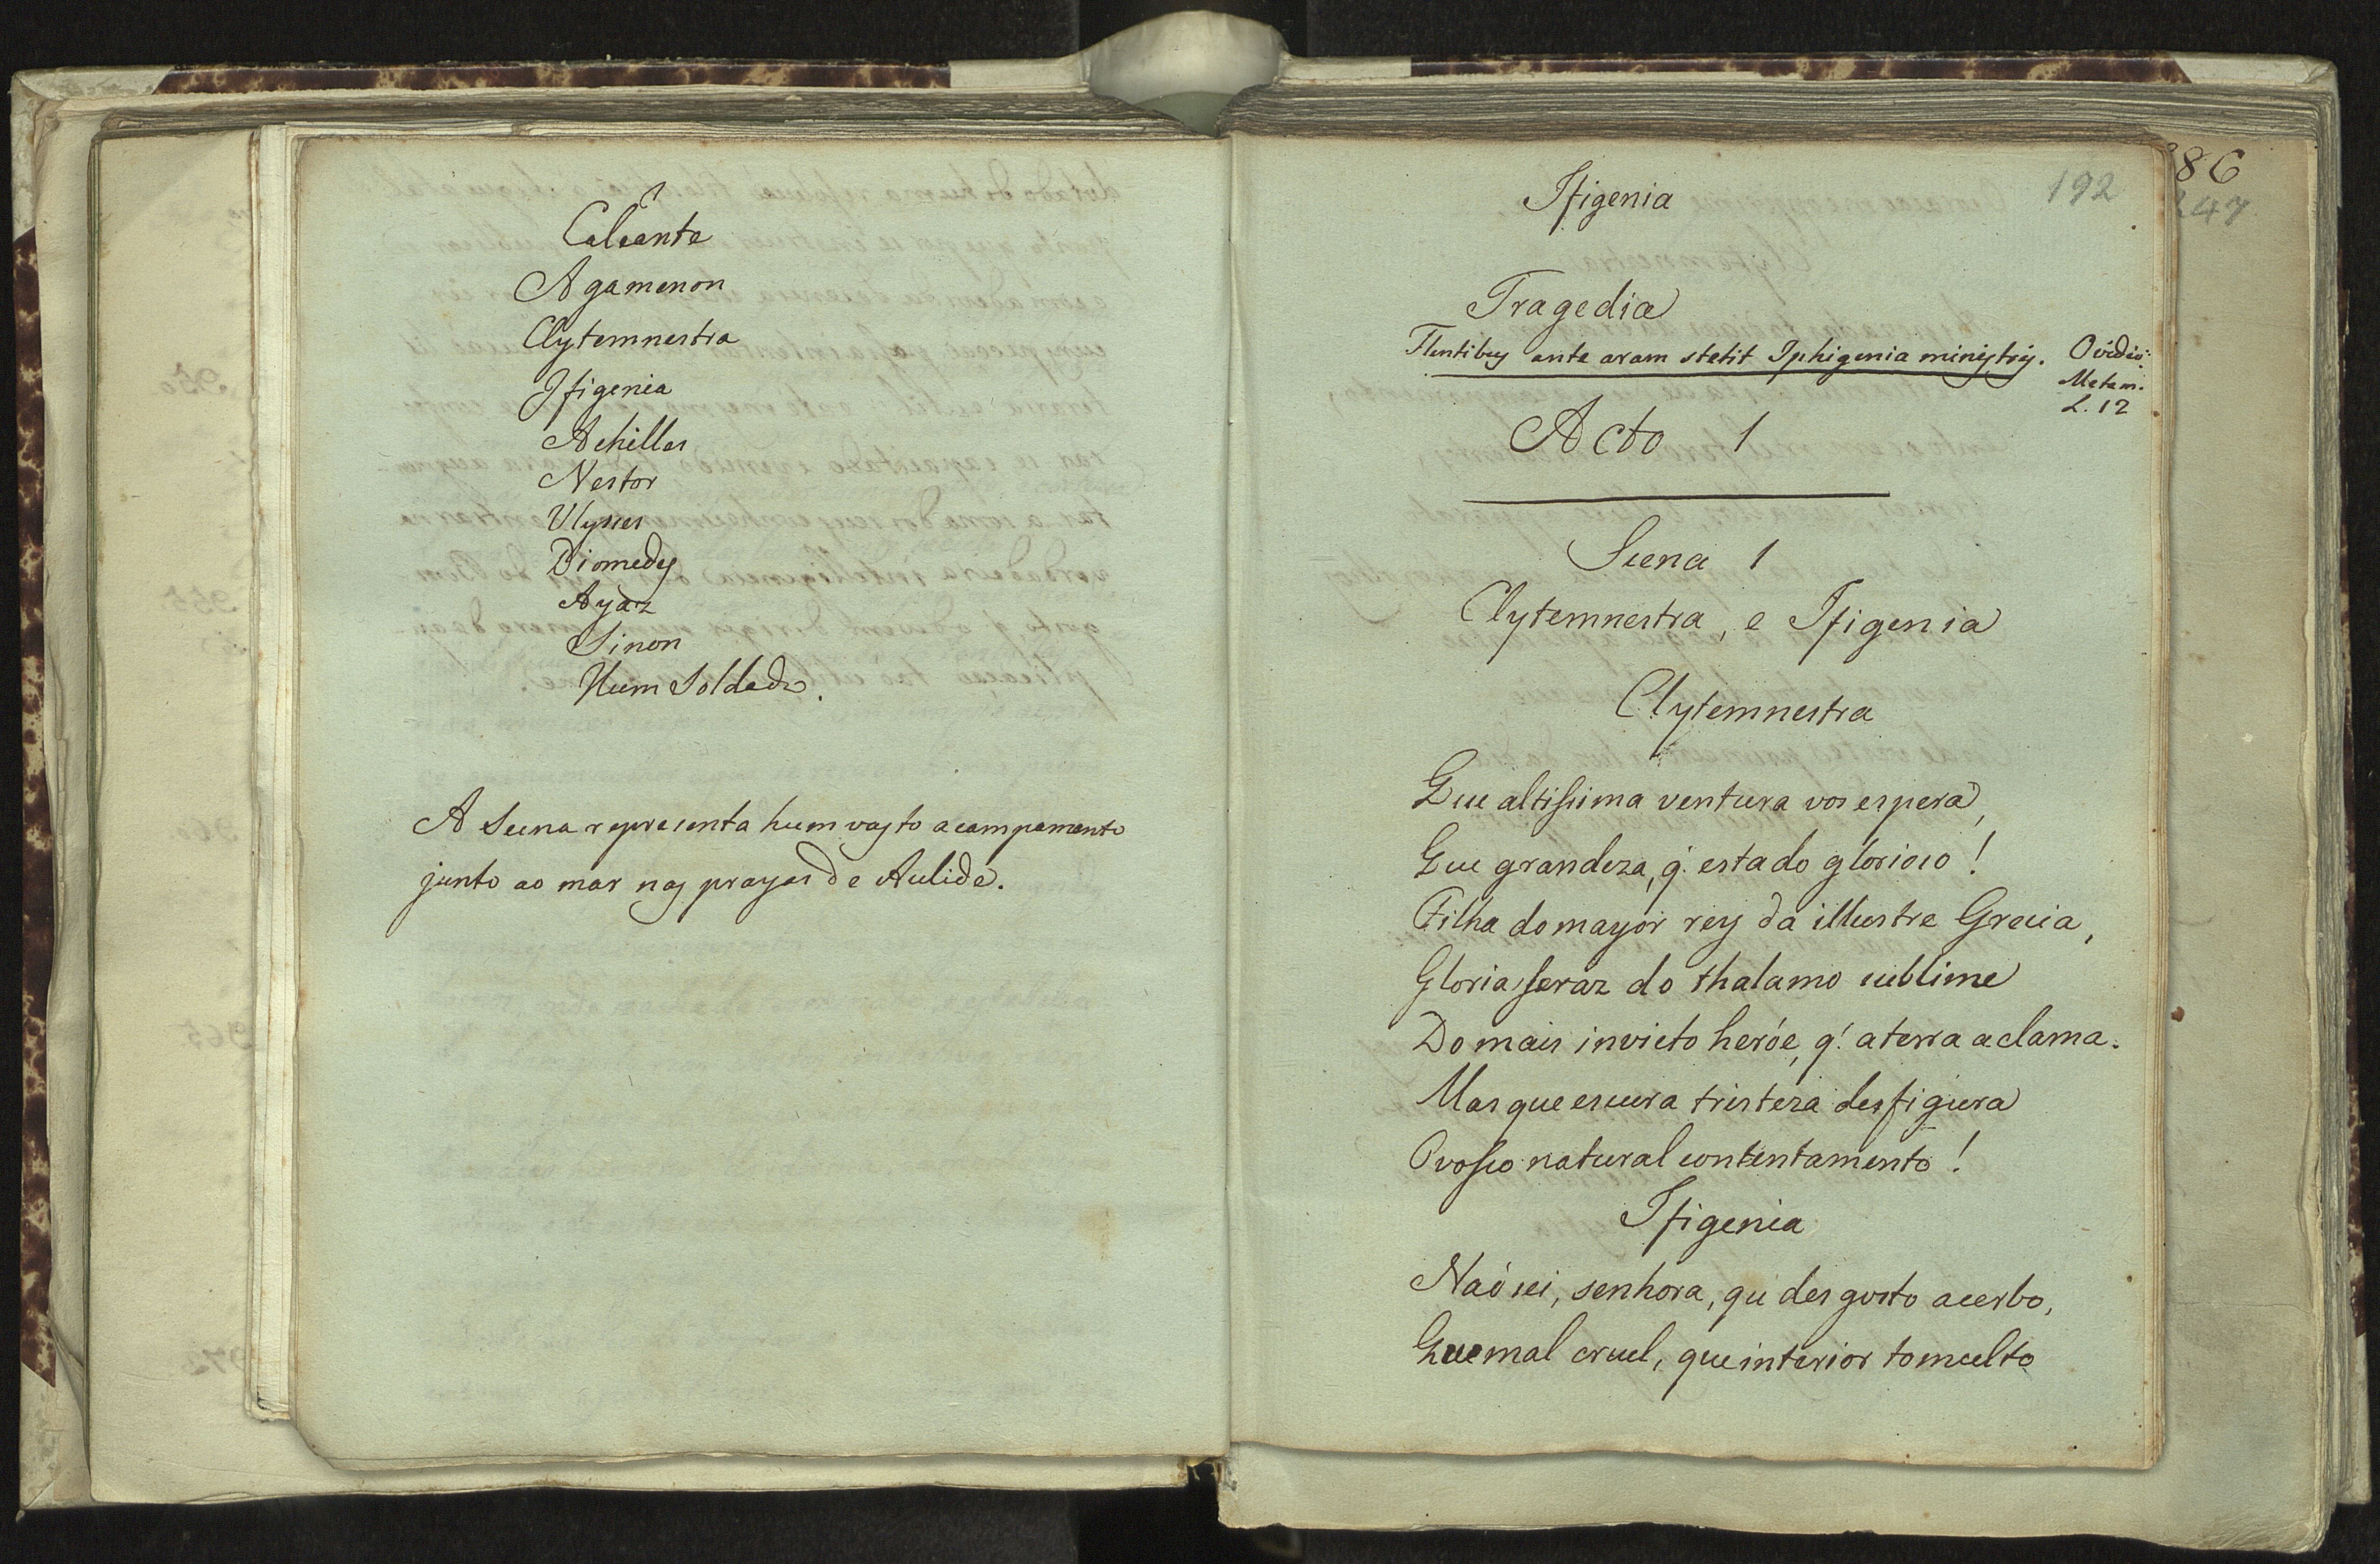 Calcante
Agamenon
Clytemnestra
Ifigenia
Achilles
Nestor
Ulysses
Diomedes
Ayaz
Sinon
Hum Soldado.
A Scena representa hum vasto acampamento
junto ao mar nas prayas de Aulide.
Ifigenia
192
86
247
Tragedia
Flentibus ante aram stetit Iphigenia ministris. Ovidio:
Metam.
L. 12
Acto 1
Scena 1
Clytemnestra, e Ifigenia
Clytemnestra
Que altissima ventura vos espera,
Que grandeza, q. estado glorioso!
Filha do mayor rey da illustre Grecia,
Gloria feraz do thalamo sublime
Do mais invicto heróe, q. a terra aclama.
Mas que escura tristeza desfigura
O vosso natural contentamento!
Ifigenia
Naó sei, senhora, qu desgosto acerbo,
Que mal cruel, que interior tomulto